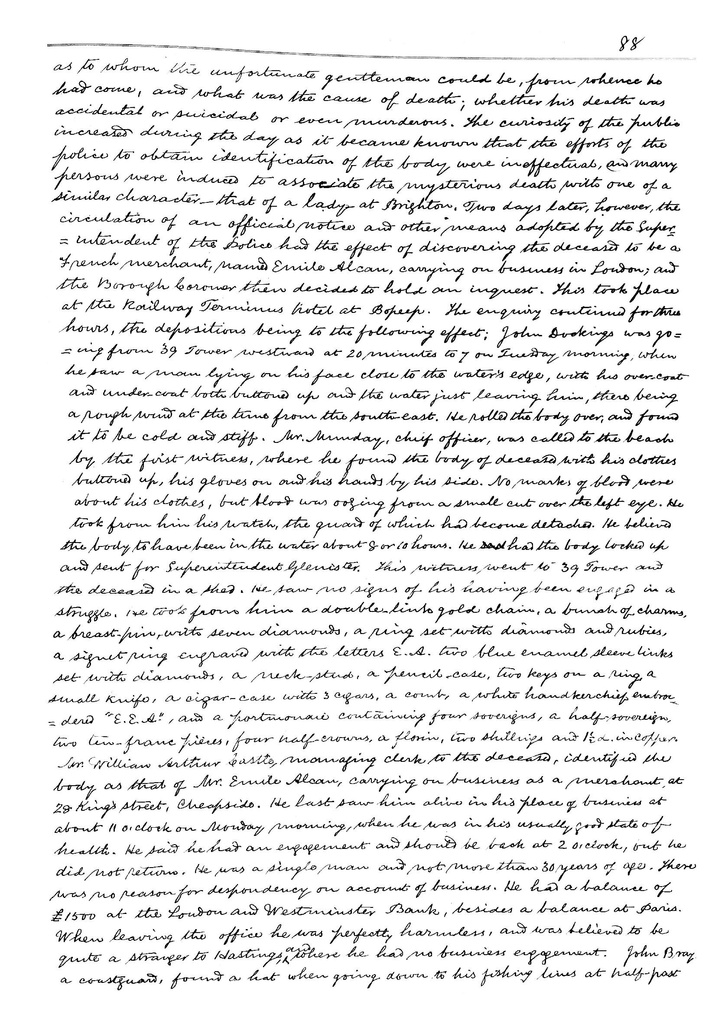 88
as to whom the unfortunate gentleman could be, from whence he
had come, and what was the cause of death; whether his death was
accidental or suicidal or even murderous. The curiosity of the public
increased during the day as it became known that the efforts of the
police to obtain identification of the body were ineffectual, and many
persons were induced to associate the mysterious death with one of a
similar character — that of a lady at Brighton. Two days later, however, the
circulation of an official notice and other means adopted by the Super=
=intendent of the Police had the effect of discovering the deceased to be a
French merchant, named Emile Alcan, carrying on business in London; and
the Borough Coroner then decided to hold an inquest. This took place
at the Railway Terminus hotel at Bopeep. The enquiry continued for three
hours, the depositions being to the following effect; John Dockings was go=
=ing from 39 Tower westward at 20 minutes to 7 on Tuesday morning, when
he saw a man lying on his face close to the water's edge, with his over-coat
and under-coat both buttoned up and the water just leaving him, there being
a rough wind at the time from the south-east. He rolled the body over, and found
it to be cold and stiff. Mr. Munday, chief officer, was called to the beach
by the first witness, where he found the body of deceased with his clothes
buttoned up, his gloves on and his hands by his side. No marks of blood were
about his clothes, but blood was oozing from a small cut over the left eye. He
took from him his watch, the guard of which had become detached. He believed
the body to have been in the water about 8 or 10 hours. He had the body locked up
and sent for Superintendent Glenister. This witness went to 39 Tower and
the deceased in a shed. He saw no signs of his having been engaged in a
struggle. He took from him a double-link gold chain, a bunch of charms,
a breast-pin, with seven diamonds, a ring set with diamonds and rubies,
a signet ring engraved with the letters E.A. two blue enamel sleeve links
set with diamonds, a neck-stud, a pencil-case, two keys on a ring, a
small knife, a cigar-case with 3 cigars, a comb, a white handkerchief embroi=
=dered "E.E.A", and a portmonaie containing four soverigns, a half-sovereign,
two ten-franc pieces, four half-crowns, a florin, two shillings and 1½d. in copper.
Mr. William Arthur Castle, managing clerk to the deceased, identified the
body as that of Mr. Emile Alcan, carrying on business as a merchant at
28 King's street, Cheapside. He last saw him alive in his place of business at
about 11 o'clock on Monday morning, when he was in his usually good state of
health. He said he had an engagement and should be back at 2 o'clock, but he
did not return. He was a single man and not more than 30 years of age. There
was no reason for despondency on account of business. He had a balance of
£1500 at the London and Westminster Bank, besides a balance at Paris.
When leaving the office he was perfectly harmless, and was believed to be
quite a stranger to Hastings, and where he had no business engagement. John Bray
a coastguard, found a hat when going down to his fishing lines at half-past